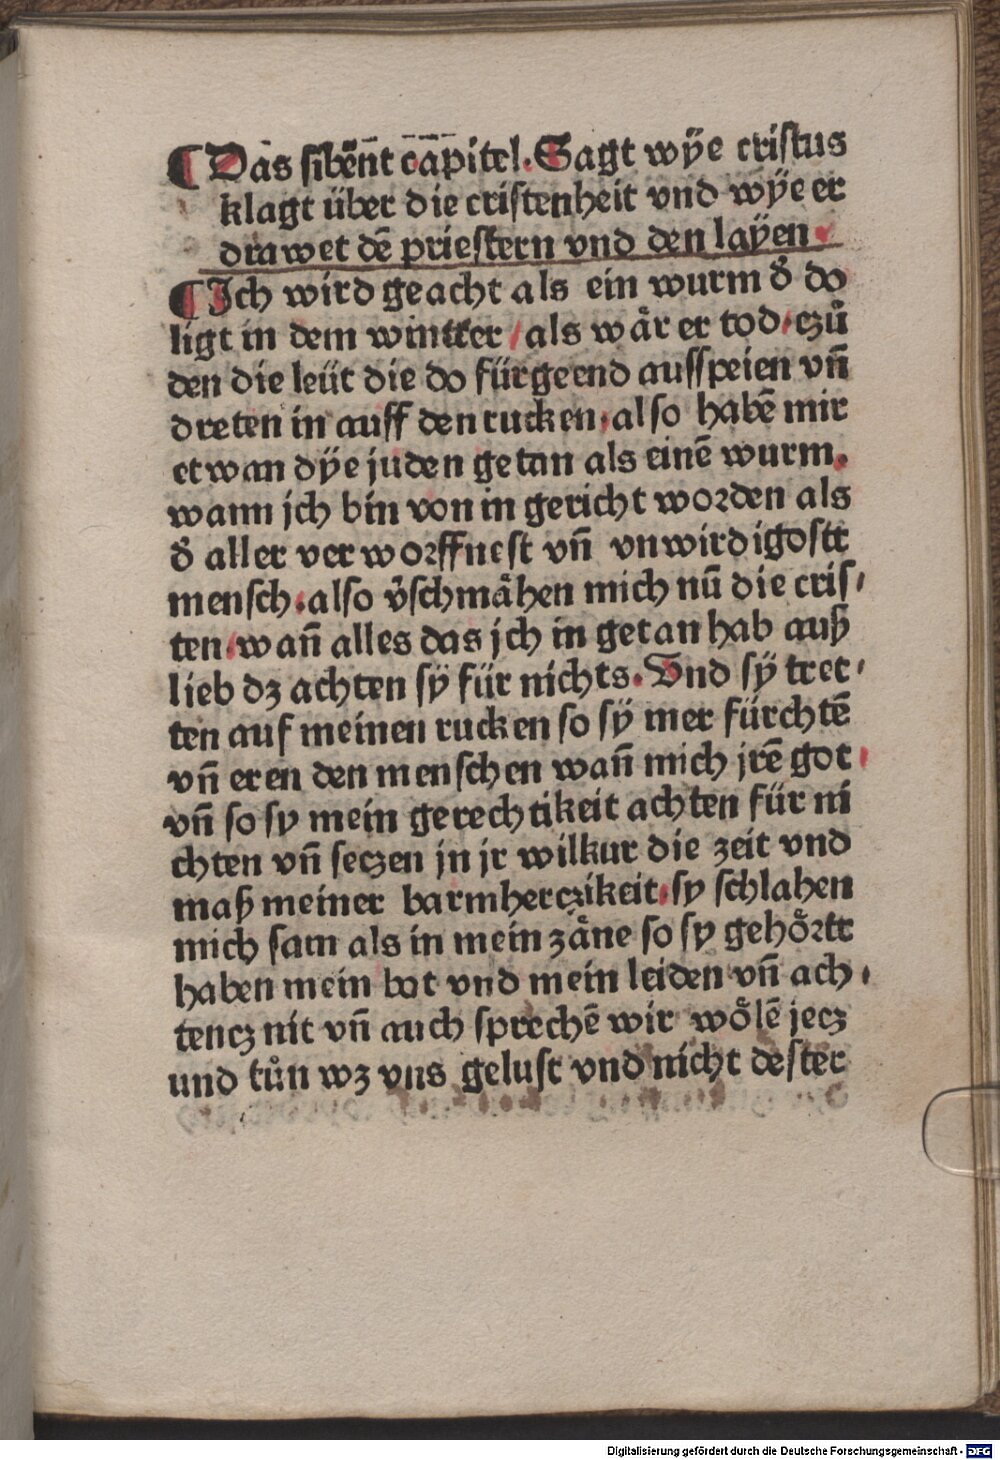 ¶ Das sibēnt cāpitel. Sagt wÿe cristus
klagt über die cristenheit vnd wÿe er
drawet dē priestern vnd den laÿen.
¶ Ich wird geacht als ein wurm d̕ do
ligt in dem wintter / als wår er tod. czů
den die leüt die do fürgeend ausspeien vn̄
dreten in auff den rucken. also habē mir
etwan dÿe juden getan als einē wurm.
wann jch bin von in gericht worden als
d̕ aller verworffnest vn̄ vnwirdigostt
mensch. also v̕schmåhen mich nū die cris⸗
ten. wan̄ alles das jch in getan hab auß
lieb dz achten sÿ für nichts. Vnd sÿ tret⸗
ten auf meinen rucken so sÿ mer fürchtē
vn̄ eren den menschen wan̄ mich jrē got
vn̄ so sy mein gerechtikeit achten für ni
chten vn̄ seczen jn jr wilkur die zeit vnd
maß meiner barmherczikeit. sy schlahen
mich sam als in mein zåne so sy geho̊rtt
haben mein bot vnd mein leiden vn̄ ach⸗
tencz nit vn̄ auch sprechē wir wo̊lē jecz
und tůn wz vns gelust vnd nicht dester
Digitalisierung gefördert durch die Deutsche Forschungsgemeinschaft - DFG